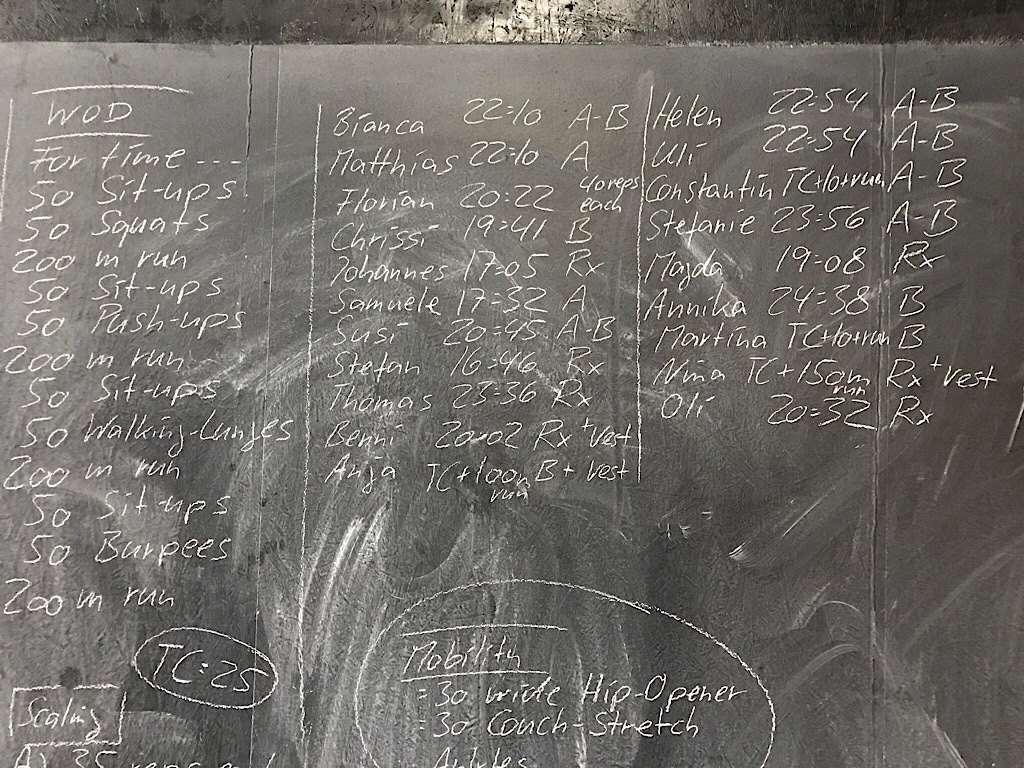 WOD
For time ---
50 Sit-ups
50 Squats
200 m run
50 Sit-ups
50 Push-ups
200 m run
50 Sit-ups
50 Walking-Lunges
200 m run
50 Sit-ups
50 Burpees
200 m run
TC: 25
Scaling
A) 35 reps
Bianca 22:10 A-B
Matthias 22:10 A
Florian 20:22 40 reps each
Chrissi 19:41 B
Johannes 17:05 Rx
Samuele 17:32 A
Susi 20:45 A-B
Stefan 16:46 Rx
Thomas 23:36 Rx
Benni 20:02 Rx + Vest
Anja TC+100m run B + Vest
Helen 22:54 A-B
Uli 22:54 A-B
Constantin TC+10+run A-B
Stefanie 23:56 A-B
Majda 19:08 Rx
Annika 24:38 B
Martina TC+10+run B
Nina TC+150m run Rx + Vest
Oli 20:32 Rx
Mobility
- 30 wide Hip-Opener
- 30 Couch-Stretch